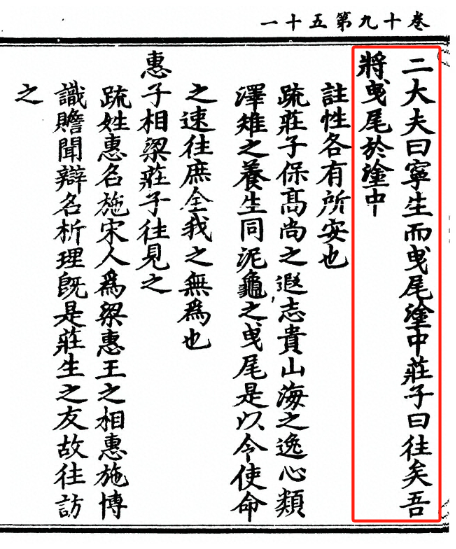 卷十九第五十一
二大夫曰寧生而曳尾塗中莊子曰往矣吾
將曳尾於塗中
註性各有所安也
疏莊子保高尚之遐志貴山海之逸心類
澤雉之養生同泥龜之曳尾是以令使命
之速往庶全我之無爲也
惠子相梁莊子往見之
疏姓惠名施宋人爲梁惠王之相惠施博
識贍聞辯名析理旣是莊生之友故往訪
之